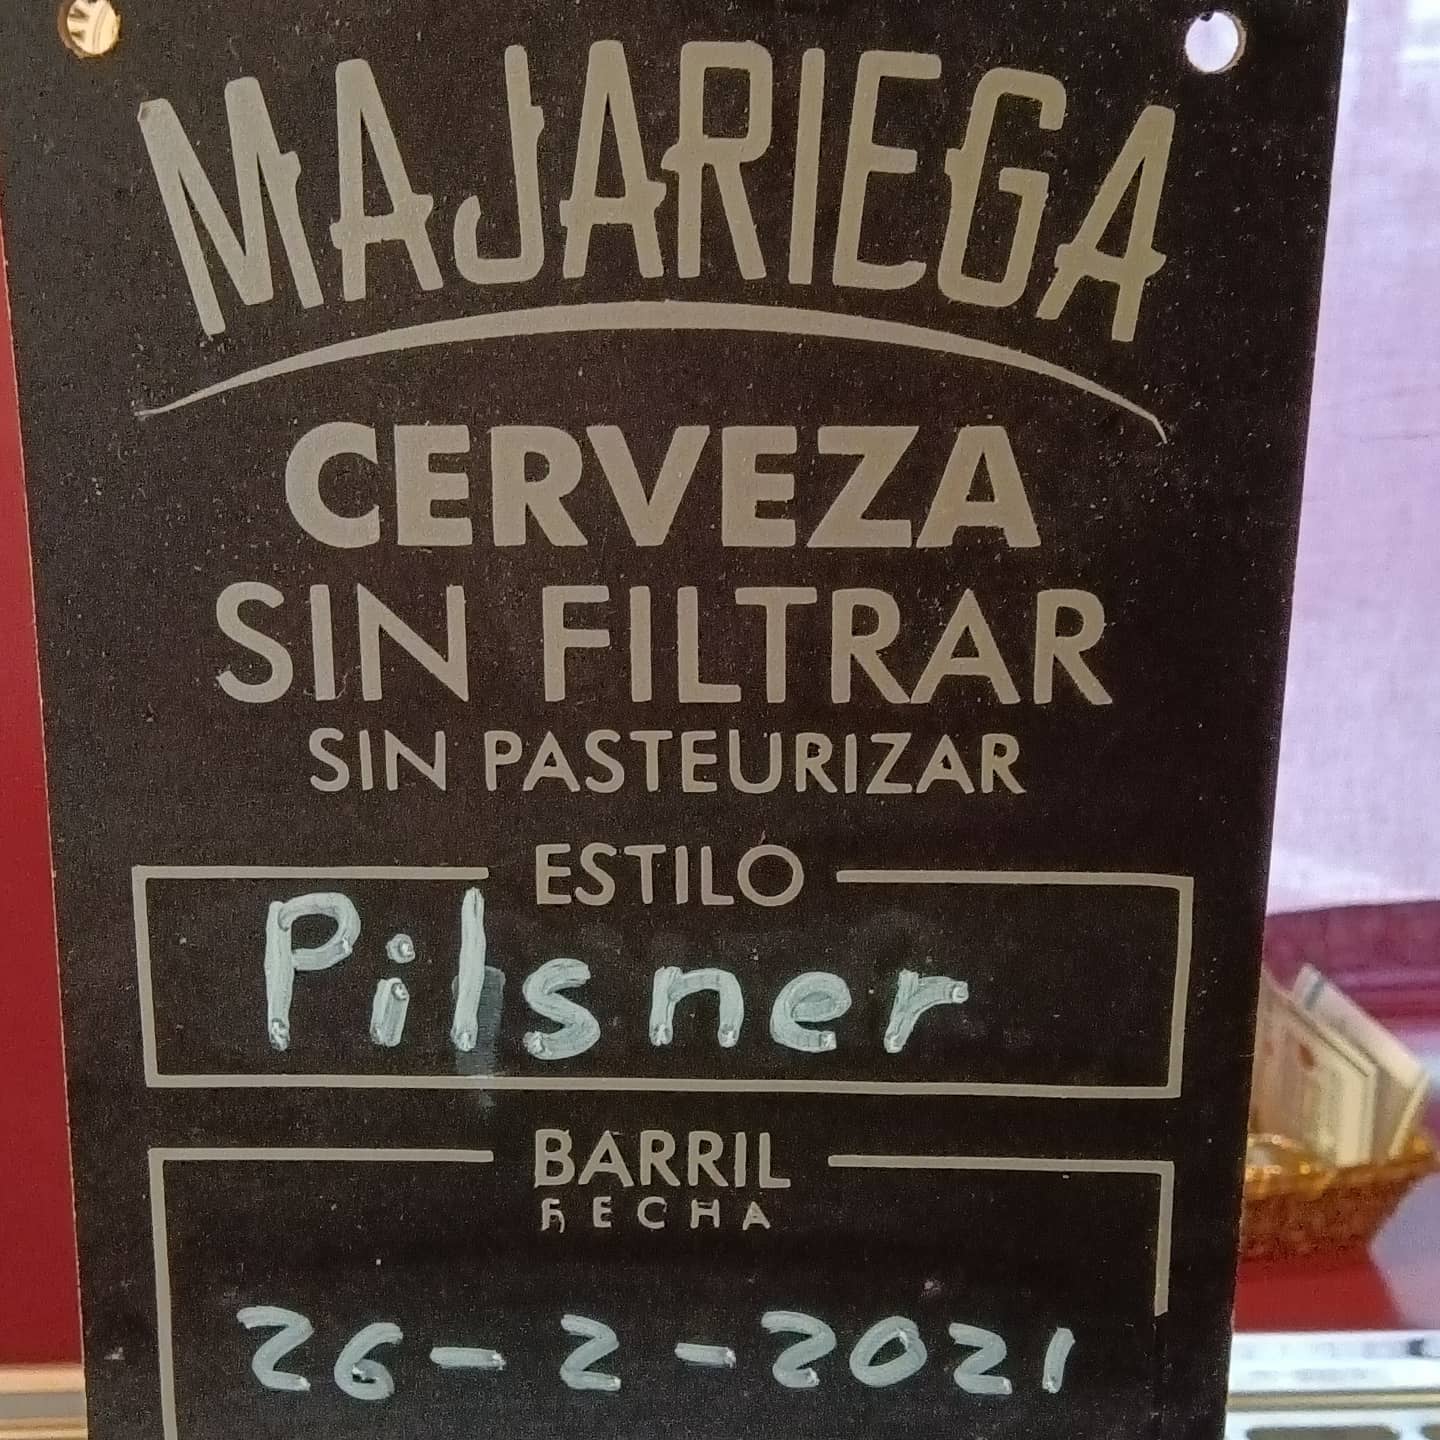 MAJARIEGA
CERVEZA
SIN FILTRAR
SIN PASTEURIZAR
ESTILO
Pilsner
BARRIL
FECHA
26-2-2021